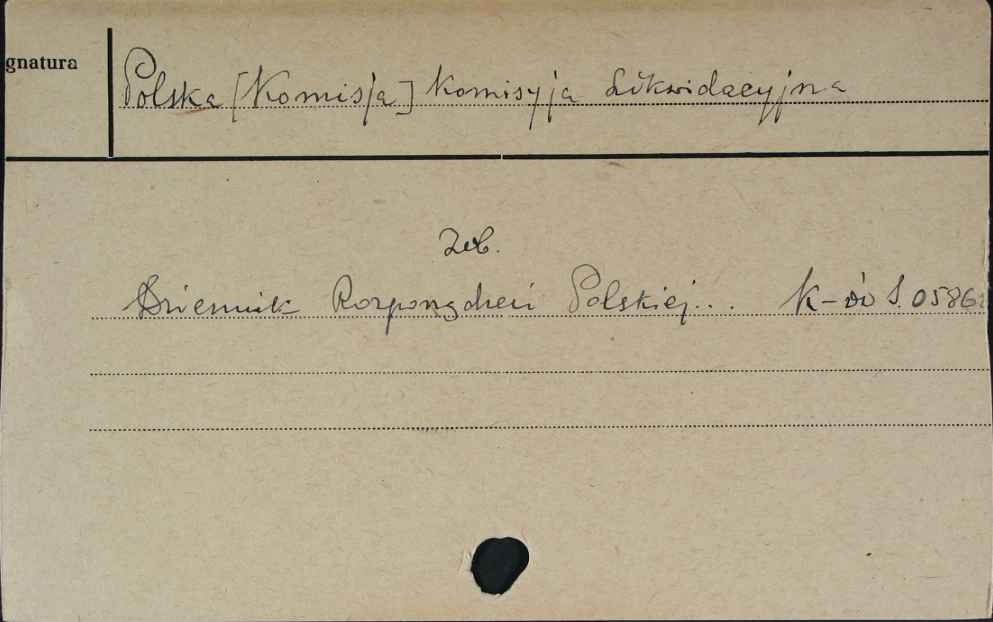 gnatura
Polska [Komisja] Komisyja Likwidacyjna
Zob.
Dziennik Rozporządzeń Polskiej... K-ów S. 0586